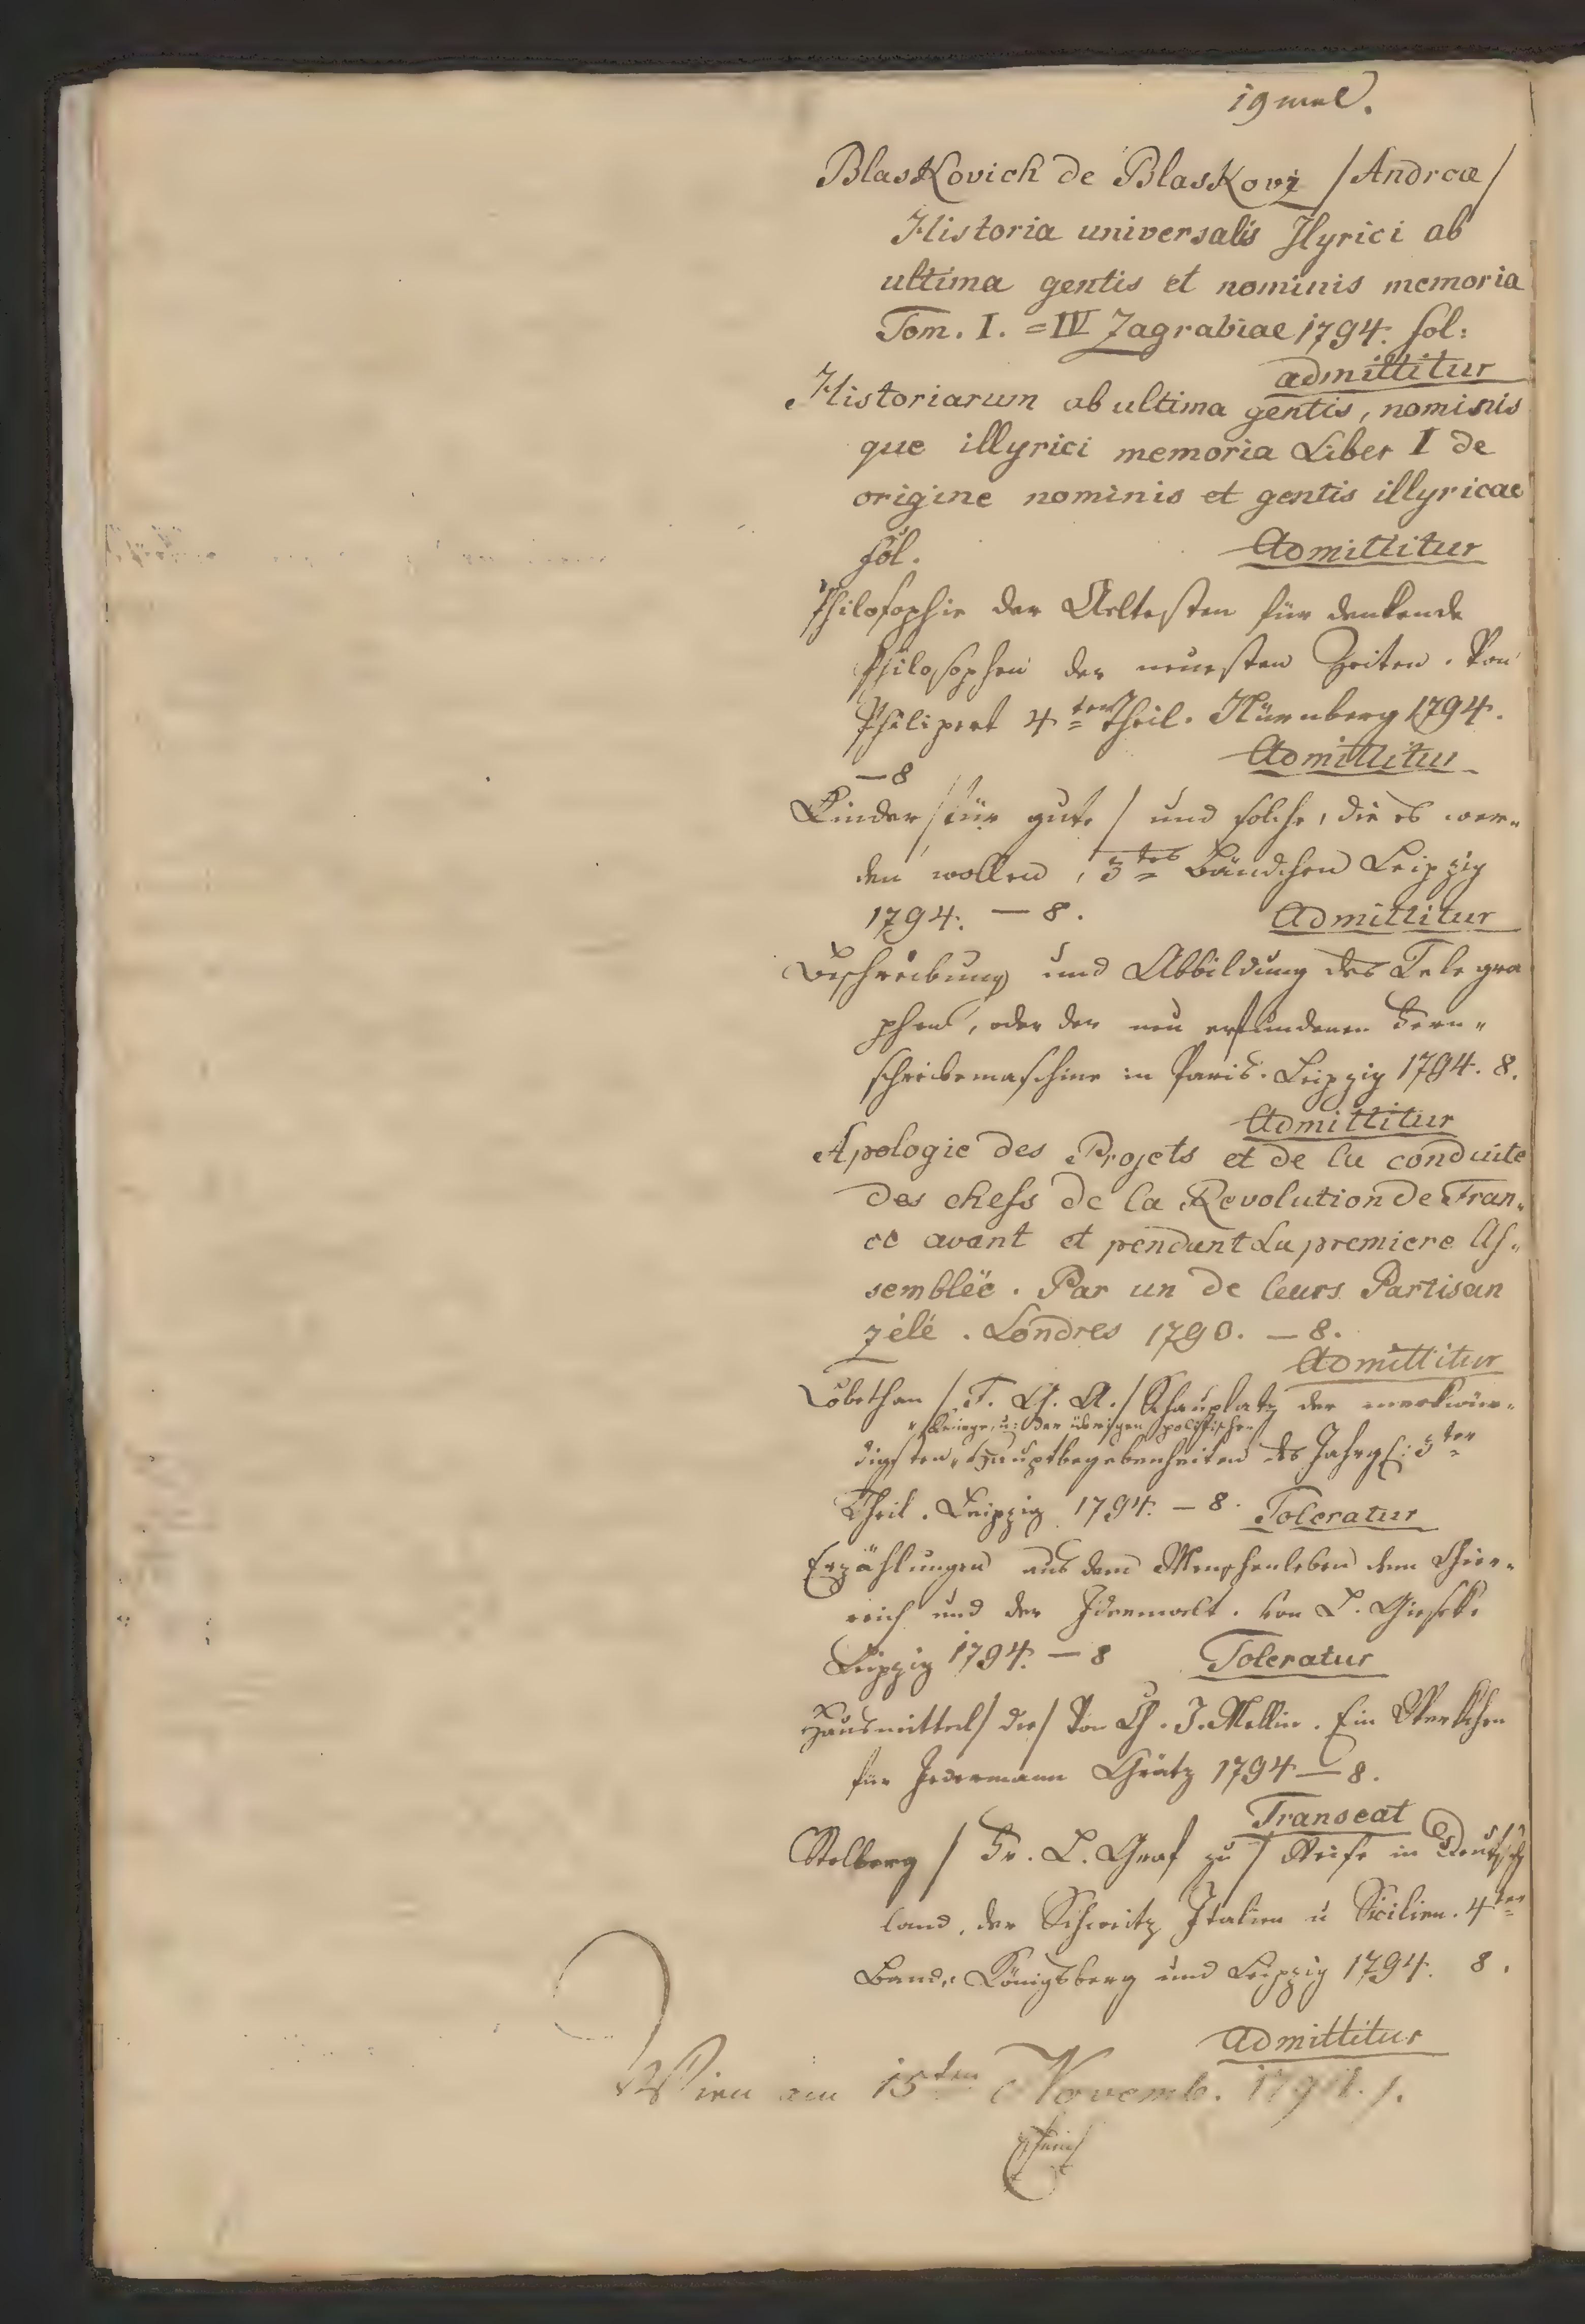 19 mal.
Blaskovich de Blaskovz /Andreæ/
Historia universalis Jlyrici ab
ultima gentis et nominis memoria
Tom. I. = IV Zagrabiae 1794. fol:
admittitur
Historiarum ab ultima gentis, nominis
que illyrici memoria Liber I de
origine nominis et gentis illyricae
fol. Admittitur
Philosophie der Aeltesten für denkende
Philosophen der neuesten Zeiten. Von
Philipert 4ter Theil. Nürnberg 1794.
— 8 Admittitur
Kinder /für gute/ und solche, die es wer„
den wollen, 3tes Bändchen Leipzig
1794. — 8. Admittitur
Beschreibung und Abbildung des Telegra
phen, oder der neu erfundenen Fern„
schreibemaschine in Paris. Leipzig 1794. 8.
Admittitur
Apologie des Projets et de la conduite
des chefs de la Revolution de Fran„
ce avant et pendant La premiere As„
sembleë. Par un de leurs Partisan
zélé. Londres 1790. — 8.
Admittitur
Löbethan /F. G. A./ Schauplatz der merkwür„
„Kriege, u: der übrigen politischen
digsten „ Hauptbegebenheiten des Jahrh: 3ter
Theil. Leipzig 1794. — 8. Toleratur
Erzählungen aus dem Menschenleben dem Thier„
reich und der Ideenwelt. von L. Gieseke
Leipzig 1794. — 8 Toleratur
Hausmittel /die/ Von Ch. J. Mellin. Ein Werkchen
für Jedermann Grätz 1794 — 8.
Transeat
Stolberg / Fr. L. Graf zu / Reise in Deutsch
land, der Schweitz Italien u Sicilien. 4ter
Band. Königsberg und Leipzig 1794. 8.
Admittitur
Wien am 15ten Novemb. 1794.